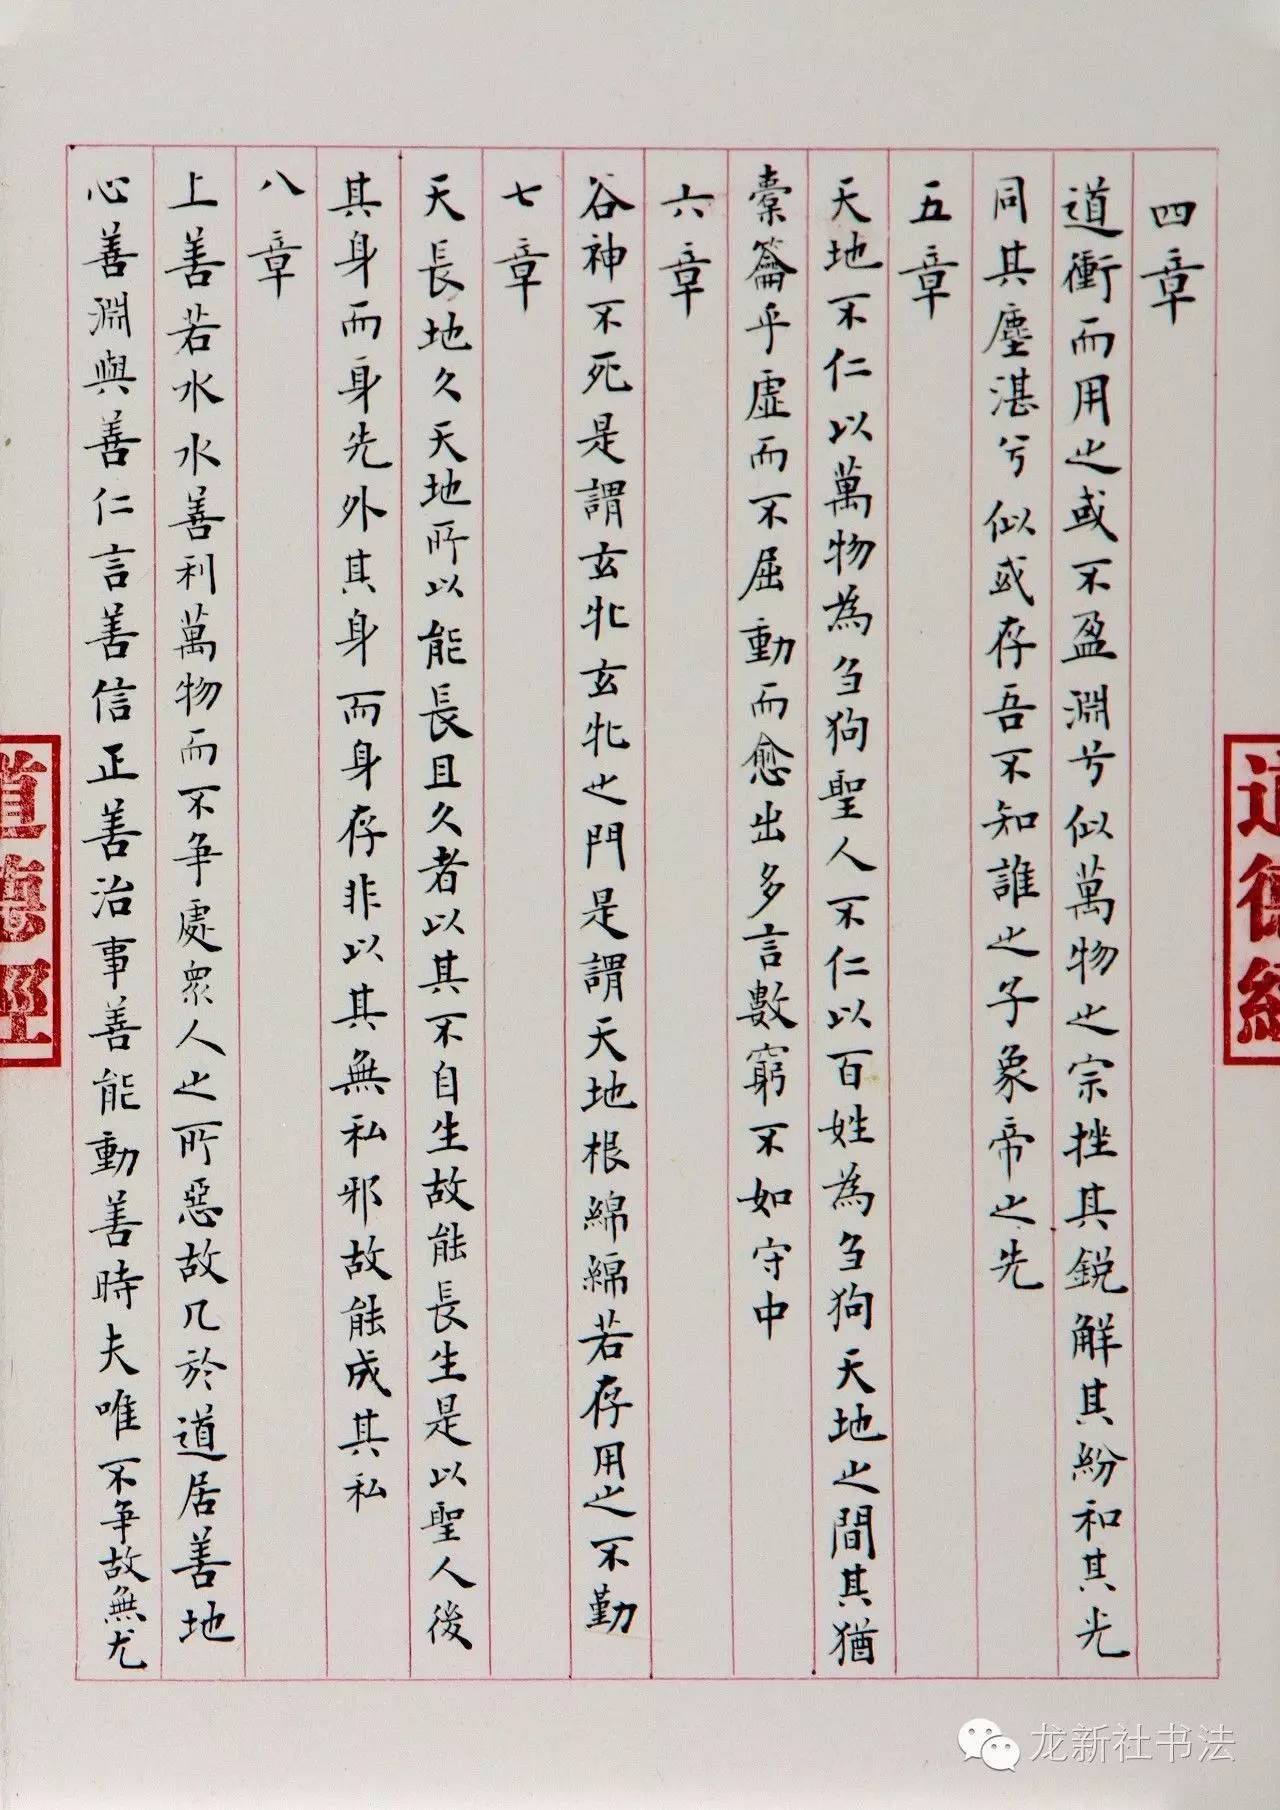 四章
道衝而用之或不盈淵兮似萬物之宗挫其鋭解其紛和其光
同其塵湛兮似或存吾不知誰之子象帝之先
五章
天地不仁以萬物為芻狗聖人不仁以百姓為芻狗天地之間其猶
橐籥乎虛而不屈動而愈出多言數窮不如守中
六章
谷神不死是謂玄牝玄牝之門是謂天地根綿綿若存用之不勤
七章
天長地久天地所以能長且久者以其不自生故能長生是以聖人後
其身而身先外其身而身存非以其無私邪故能成其私
八章
上善若水水善利萬物而不争處衆人之所惡故几於道居善地
心善淵與善仁言善信正善治事善能動善時夫唯不争故無尤
道德經
道德經
龙新社书法